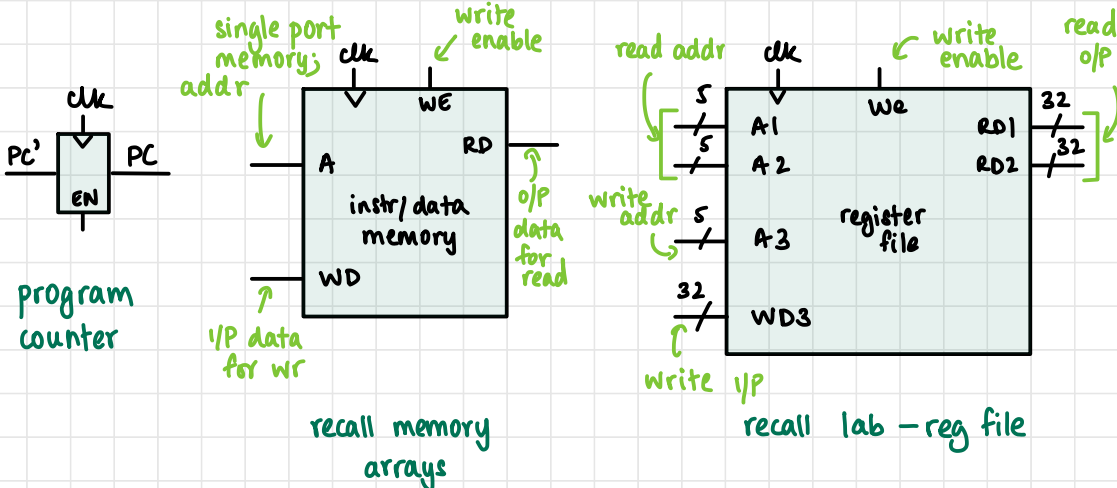 clk
PC'
PC
EN
program
counter
single port
memory;
addr
clk
write
enable
WE
A
RD
instr/data
memory
WD
O/P
data
for
read
I/P data
for wr
recall memory
arrays
read addr
clk
write
enable
read
O/P
We
5
A1
5
A2
32
RD1
32
RD2
write
addr
5
A3
register
file
32
WD3
write I/P
recall lab - reg file